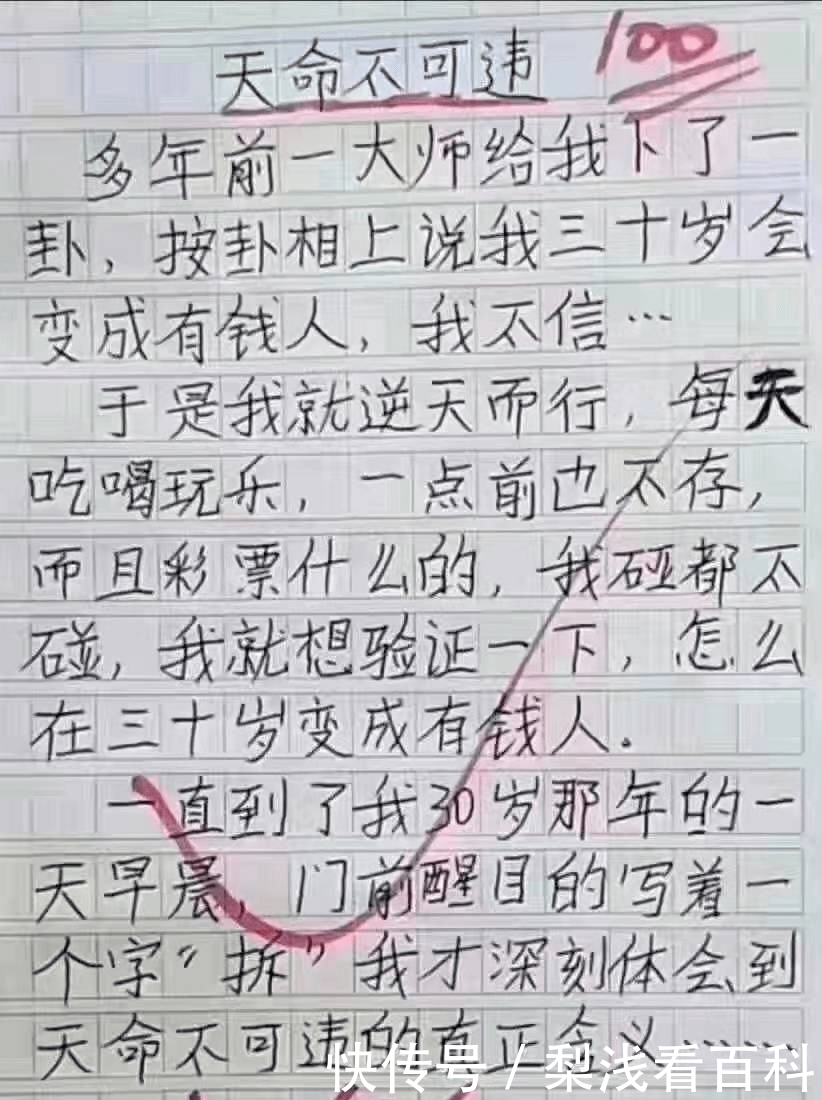 天命不可违 100
多年前一大师给我下了一
卦，按卦相上说我三十岁会
变成有钱人，我不信…
于是我就逆天而行，每天
吃喝玩乐，一点前也不存，
而且彩票什么的，我碰都不
碰，我就想验证一下，怎么
在三十岁变成有钱人。
一直到了我30岁那年的一
天早晨，门前醒目的写着一
个字“拆”我才深刻体会到
天命不可违的真正含义……
快传号 / 梨浅看百科